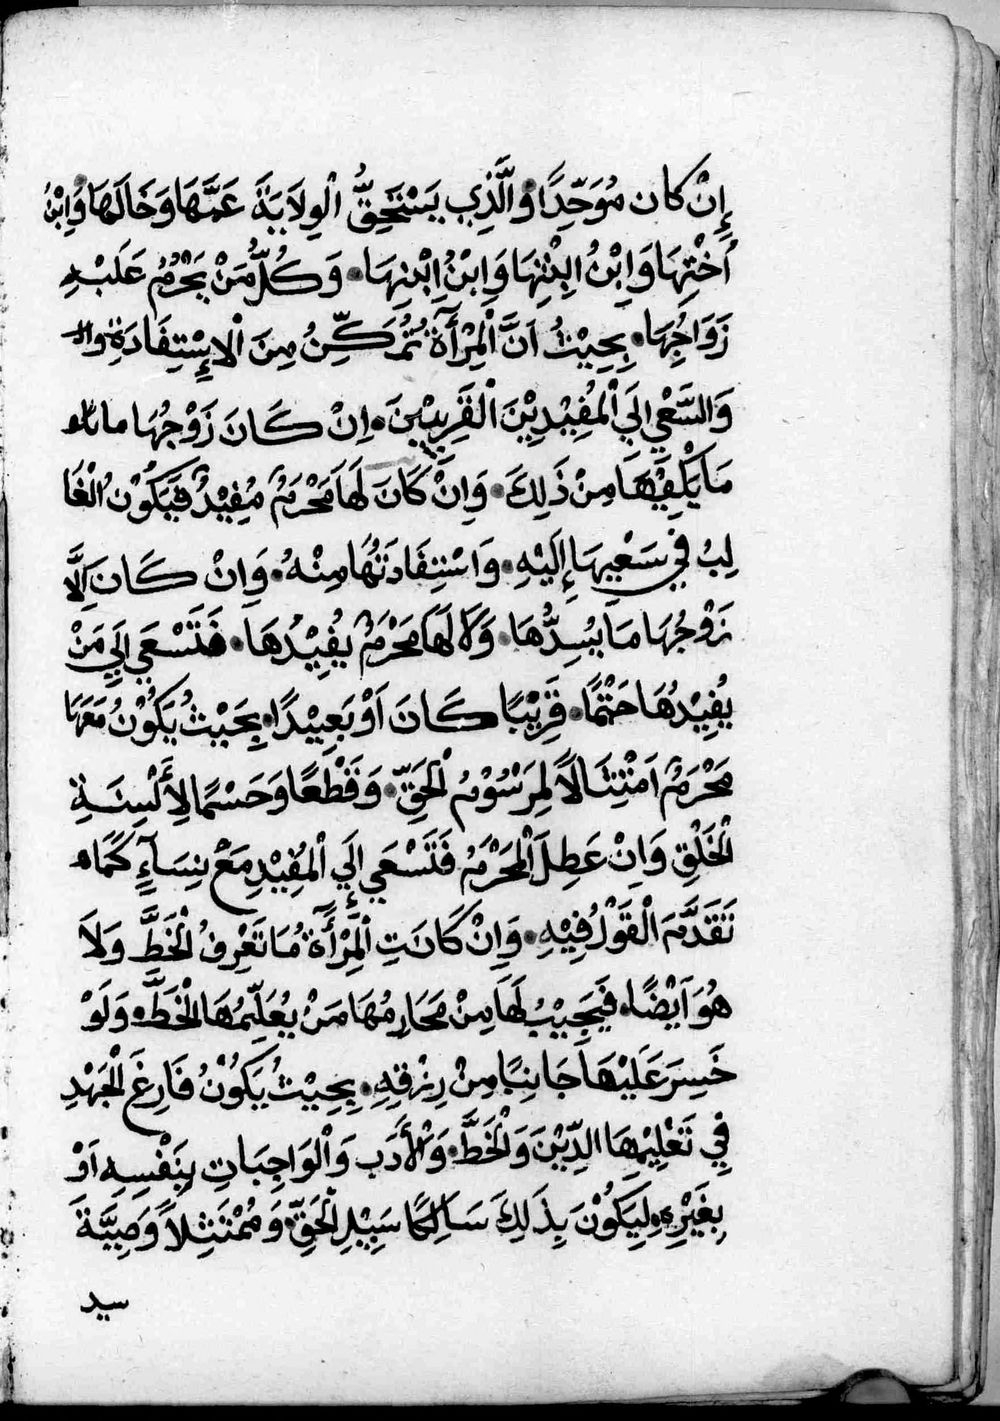 إِنْ كان مُوَحِّدًا وَالَّذِي يَسْتَحِقُّ الْوِلَايَةَ عَمَّهَا وَخَالَهَا وَابْنُ
أُخْتِهَا وَابْنُ ابْنَتِهَا وَابْنُ ابْنِهَا، وَكُلُّ مَنْ يَحْرُمُ عَلَيْهِ
زَوَاجُهَا، بِحَيْثُ اَنَّ الْمِرْأَةَ تُمَكِّنُ مِنَ الْاِسْتِفَادَةِ وال
وَالسَّعْيِ اِلَي الْمُفِيْدِيْنَ الْقَرِيبِيْنَ، اِنْ كَانَ زَوْجُهَا ما
مَا يَكْفِيْهَا مِنْ ذَلِكَ، وَاِنْ كَانَ لَهَا مَحْرَمٌ مُفِيْدٌ فَيَكُوْنُ الْغَا
لِبُ فِي سَعْيِهَا إِلَيْهِ، وَاسْتِفَادَتُهَا مِنْهُ، وَاِنْ كَانَ اِلَّا
زَوْجُهَا مَا يُسِدُّهَا، وَلَا لَهَا مَحْرَمٌ يُفِيْدُهَا، فَتَسْعَي اِلَي مَنْ
يُفِيْدُهَا حَتْمًا، قَرِيْبًا كَانَ اَوْ بَعِيْدًا، بِحَيْثُ يَكُوْنُ مَعَهَا
مَحْرَمٌ اَمْتِثَالًا لِمَرْسُوْمِ الْحَقِّ، وَقَطْعًا وَحَسْمًا لِأَلْسِنَةِ
الْخَلْقِ وَاِنْ عَطِلَ الْمَحْرَمُ فَتَسْعَي إِلَي الْمُفِيْدِ مَعْ نِسَآءٍ كَمَا
تَقَدَّمَ الْقَوْلُ فِيْهِ، وَاِنْ كَانَتِ الْمَرْأَةُ مَا تَعْرِفُ الْخَطَّ وَلَا
هُوَ اَيْضًا، فَيَجِيْبُ لَهَا مِنْ مَحَارِمُهَا مَنْ يُعَلِّمُهَا الْخَطَّ، وَلَوْ
خَسِرَ عَلَيْهَا جَانِبًا مِنْ رِزْقِهِ، بِحَيْثُ يَكُوْنُ فَارِغَ الْجَهْدِ
فِي تَعْلِيْمِهَا الدِّيْنَ وَالْخَطَّ، وَالْأَدَب وَالْوَاجِبَاتِ بِنَفْسِهِ اَوْ
بِغَيْرِهِ، لِيَكُوْنَ بِذَلِكَ سَالِكًا سَبِيْلِ الْحَقِّ، وَمُمْتَثِلاً وَصِيَّةَ
سيد